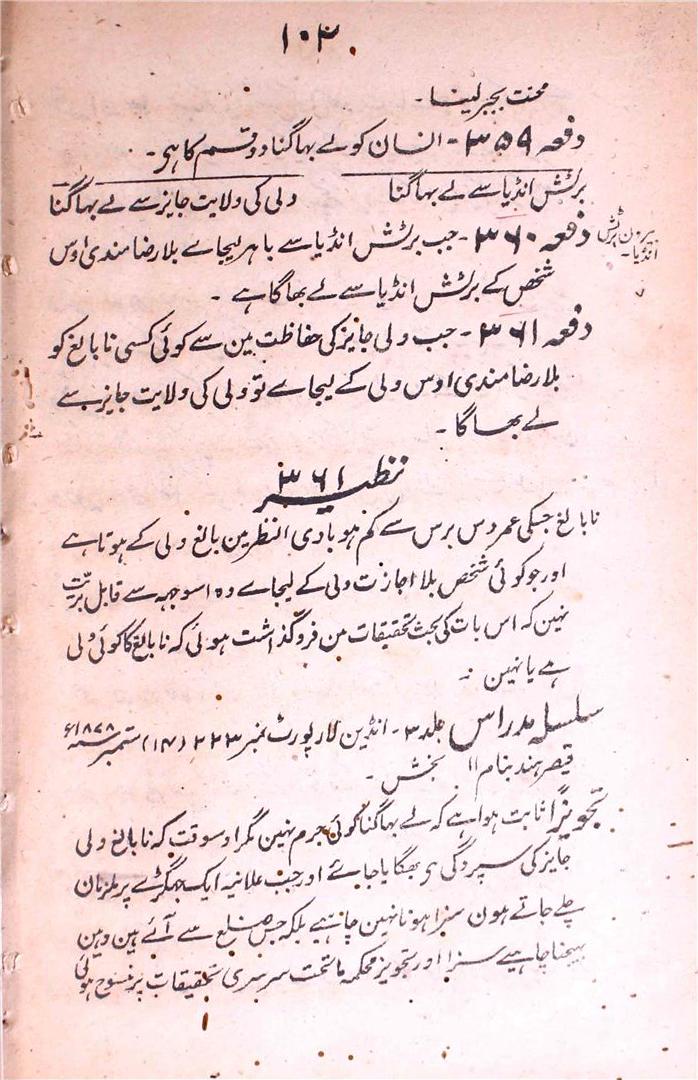 ۱۰۲
محنت بجبر لینا ۔
دفعہ ۳۵۹ ۔ انسان کو لے بہاگنا دو قسم کا ہی ۔
برٹش انڈیا سے لے بہاگنا ولی کی ولایت جایز سے لے بہاگنا
بیرون برٹش انڈیا ۔
دفعہ ۳۶۰ ۔ جب برٹش انڈیا سے باہر لیجاے بلا رضا مندی اوس
شخص کے برٹش انڈیا سے لے بھاگا ہے ۔
دفعہ ۳۶۱ ۔ جب ولی جایز کی حفاظت مین سے کوئی کسی نابالغ کو
بلا رضا مندی اوس ولی کے لیجاے تو ولی کی ولایت جایز سے
لے بھاگا ۔
نظیر ۳۶۱
نابالغ جسکی عمر دس برس سے کم ہو بادی النظر مین بالغ ولی کے ہوتا ہے
اور جو کوئی شخص بلا اجازت ولی کے لیجاے وہ اسوجہہ سے قابل بریت
نہین کہ اس بات کی بحث تحقیقات من فروگذاشت ہوئی کہ نابالغ کا کوئی ولی
ہے یا نہین ۔
سلسلہ مدراس جلد ۳ ۔ انڈین لارپورٹ نمبر ۲۲۳ (۱۷) ستمبر سنہ ۱۸۷۸ء
قیصر ہند بنام ۱۱ بخش ۔
تجویزاً ثابت ہوا ہے کہ لے بہاگنا کوئی جرم نہین مگر اوسوقت کہ نابالغ ولی
جایز کی سپردگی بھگایا جاے اور جب علانیہ ایک جھگڑے پر ملزمان
چلے جاتے ہون سزا ہونا نہین چاہیے بلکہ جس ضلع سے آئے ہین وہین
بہیجنا چاہیے سزا اور تجویز محکمہ ماتحت سرسری تحقیقات پر منسوخ ہوئی